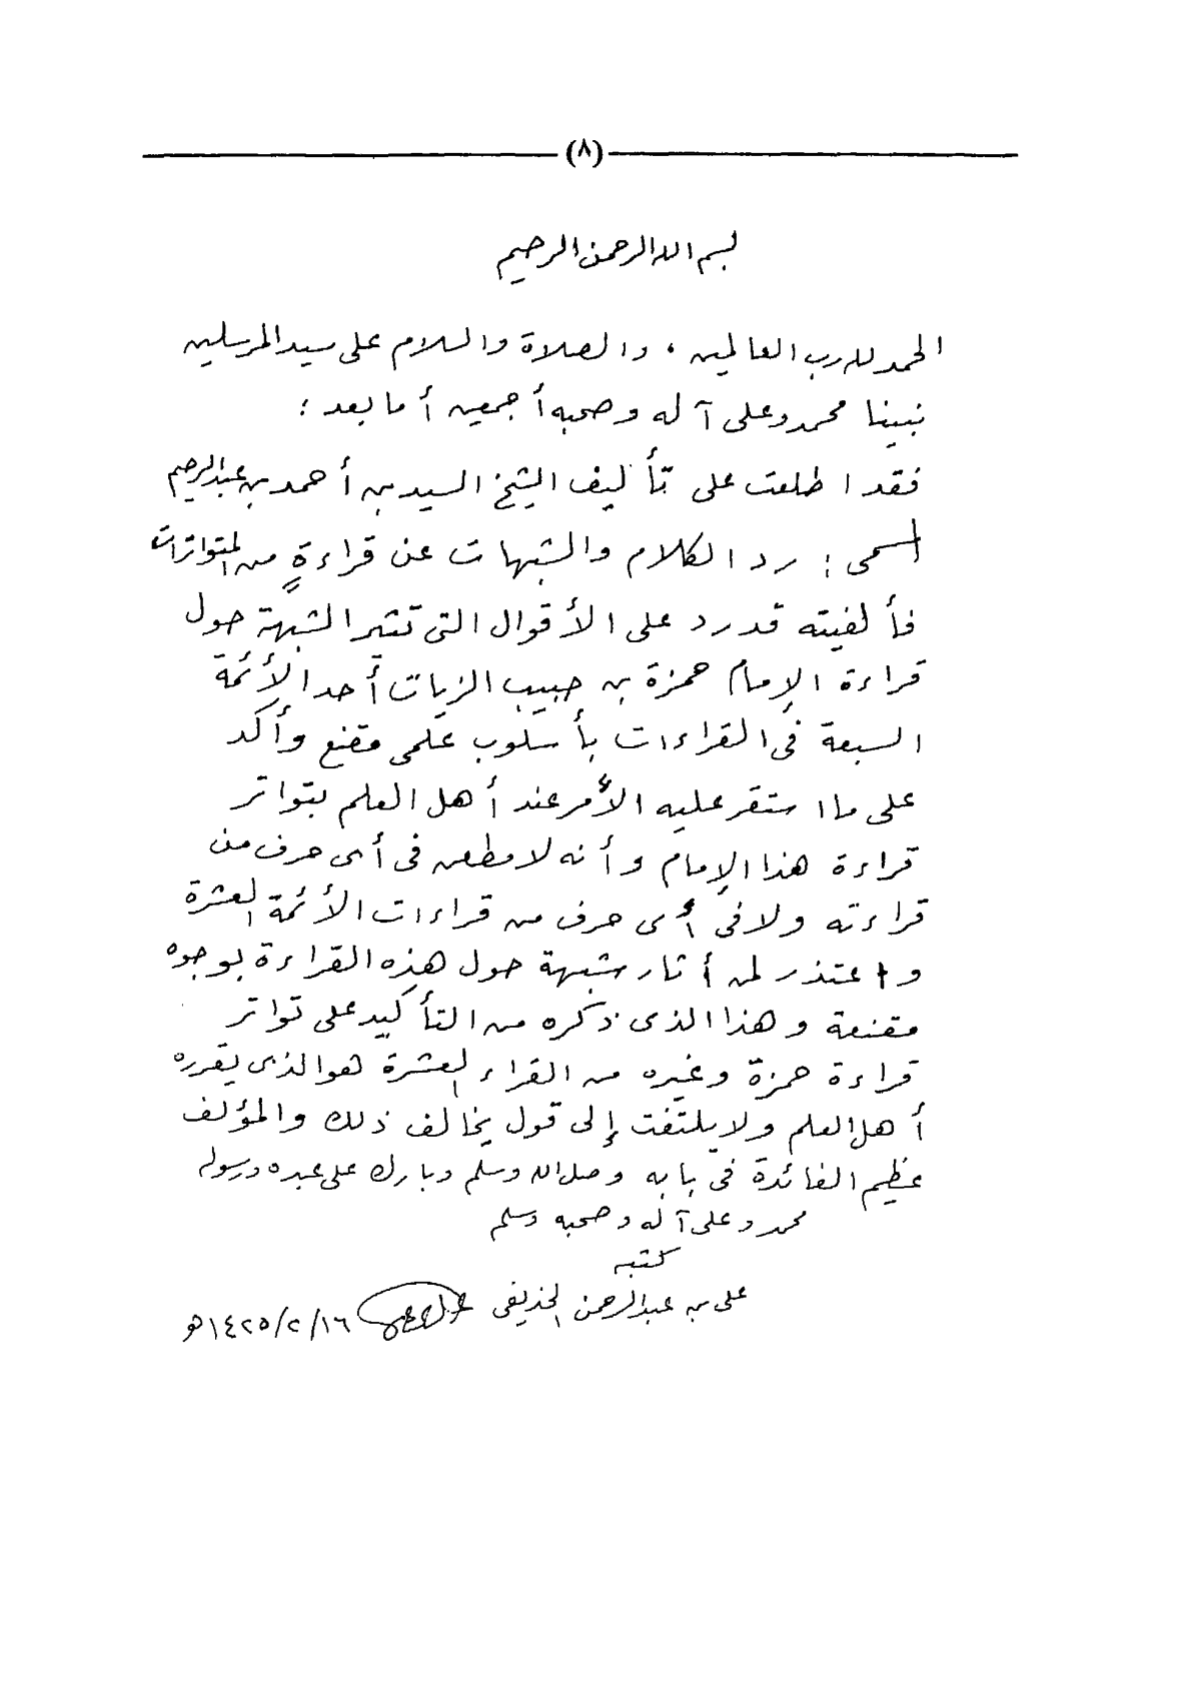 (٨)
بسم الله الرحمن الرحيم
الحمد لله رب العالمين ، والصلاة والسلام على سيد المرسلين
نبينا محمد وعلى آله وصحبه أجمعين أما بعد :
فقد اطلعت على تأليف الشيخ السيد بن أحمد بن عبد الرحيم
المسمى : رد الكلام والشبهات عن قراءةٍ من المتواترات
فألفيته قد رد على الأقوال التى تثير الشبهة حول
قراءة الإمام حمزة بن حبيب الزيات أحد الأئمة
السبعة فى القراءات بأسلوب علمى مقنع وأكد
على ما استقر عليه الأمر عند أهل العلم بتواتر
قراءة هذا الإمام وأنه لا مطعن فى أى حرف من
قراءته ولا فى أى حرف من قراءات الأئمة العشرة
واعتذر لمن أثار شبهة حول هذه القراءة بوجوه
مقنعة وهذا الذى ذكره من التأكيد على تواتر
قراءة حمزة وغيره من القراء العشرة هو الذى يقرره
أهل العلم ولا يلتفت إلى قول يخالف ذلك والمؤلف
عظيم الفائدة فى بابه وصلى الله وسلم وبارك على عبده ورسوله
محمد وعلى آله وصحبه وسلم
كتبه
على بن عبد الرحمن الحذيفى ١٤٢٥/٢/١٦هـ